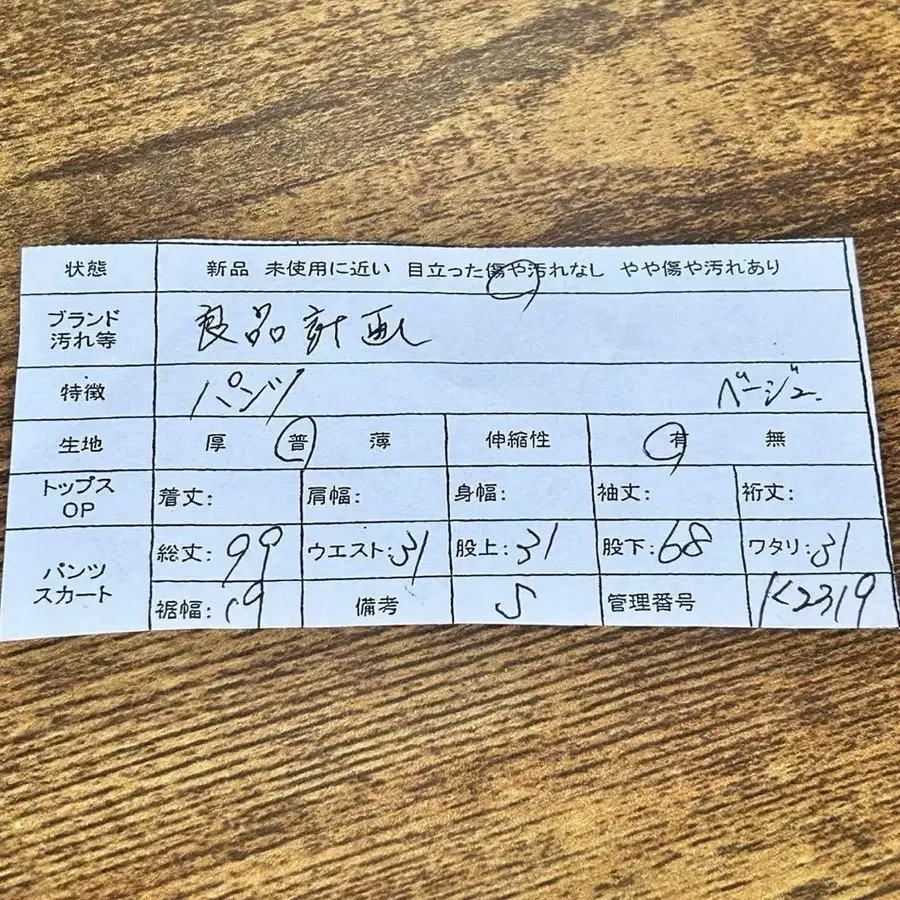 状態 新品 未使用に近い 目立った傷や汚れなし やや傷や汚れあり
ブランド 汚れ等 良品計画
特徴 パンツ ベージュ
生地 厚 普 薄 伸縮性 有 無
トップス OP 着丈: 肩幅: 身幅: 袖丈: 裄丈:
パンツ スカート 総丈:99 ウエスト:31 股上:31 股下:68 ワタリ:31
裾幅:19 備考 S 管理番号 K2319